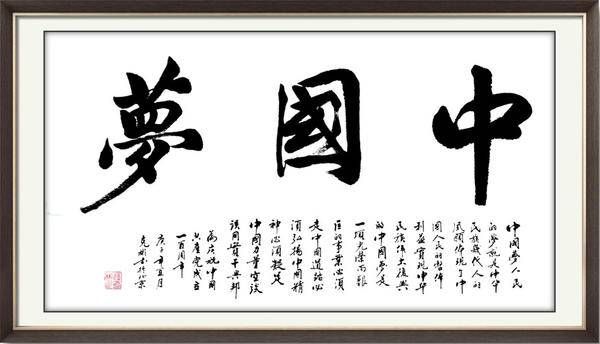 中國夢
中國夢人民
的夢就是中華
民族歷代人的
夙願體現了中
國人民的整體
利益實現中華
民族偉大復興
的中國夢是
一項光榮而艱
巨的事業必須
走中國道路必
須弘揚中國精
神必須凝
中國力量空談
誤國實干興邦
為慶祝中國
共產黨成立
一百周年
庚子年五月
書於北京